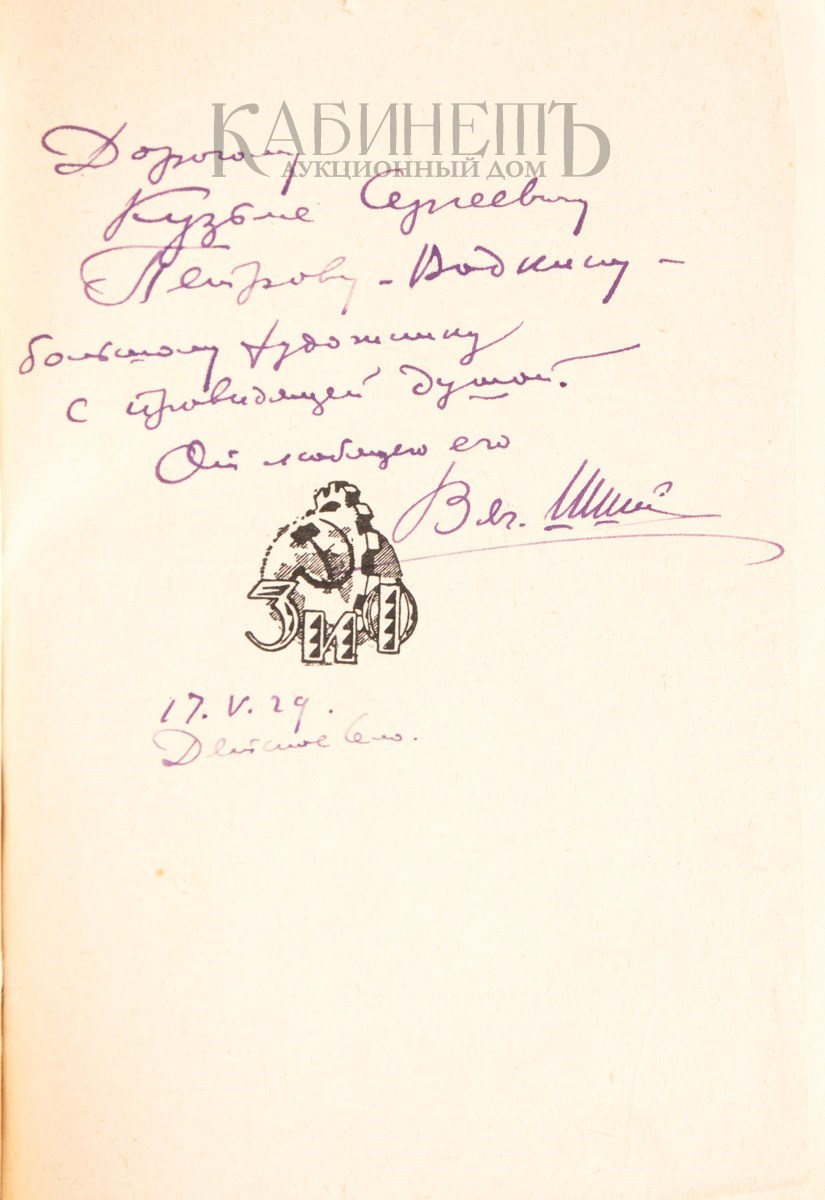 КАБИНЕТЪ
АУКЦИОННЫЙ ДОМ
Дорогому
Кузьме Сергеевичу
Петрову-Водкину –
большому художнику
с провидящей душой.
От любящего его
Вяч. Шишков
ЗИФ
17.V.29.
Детское Село.